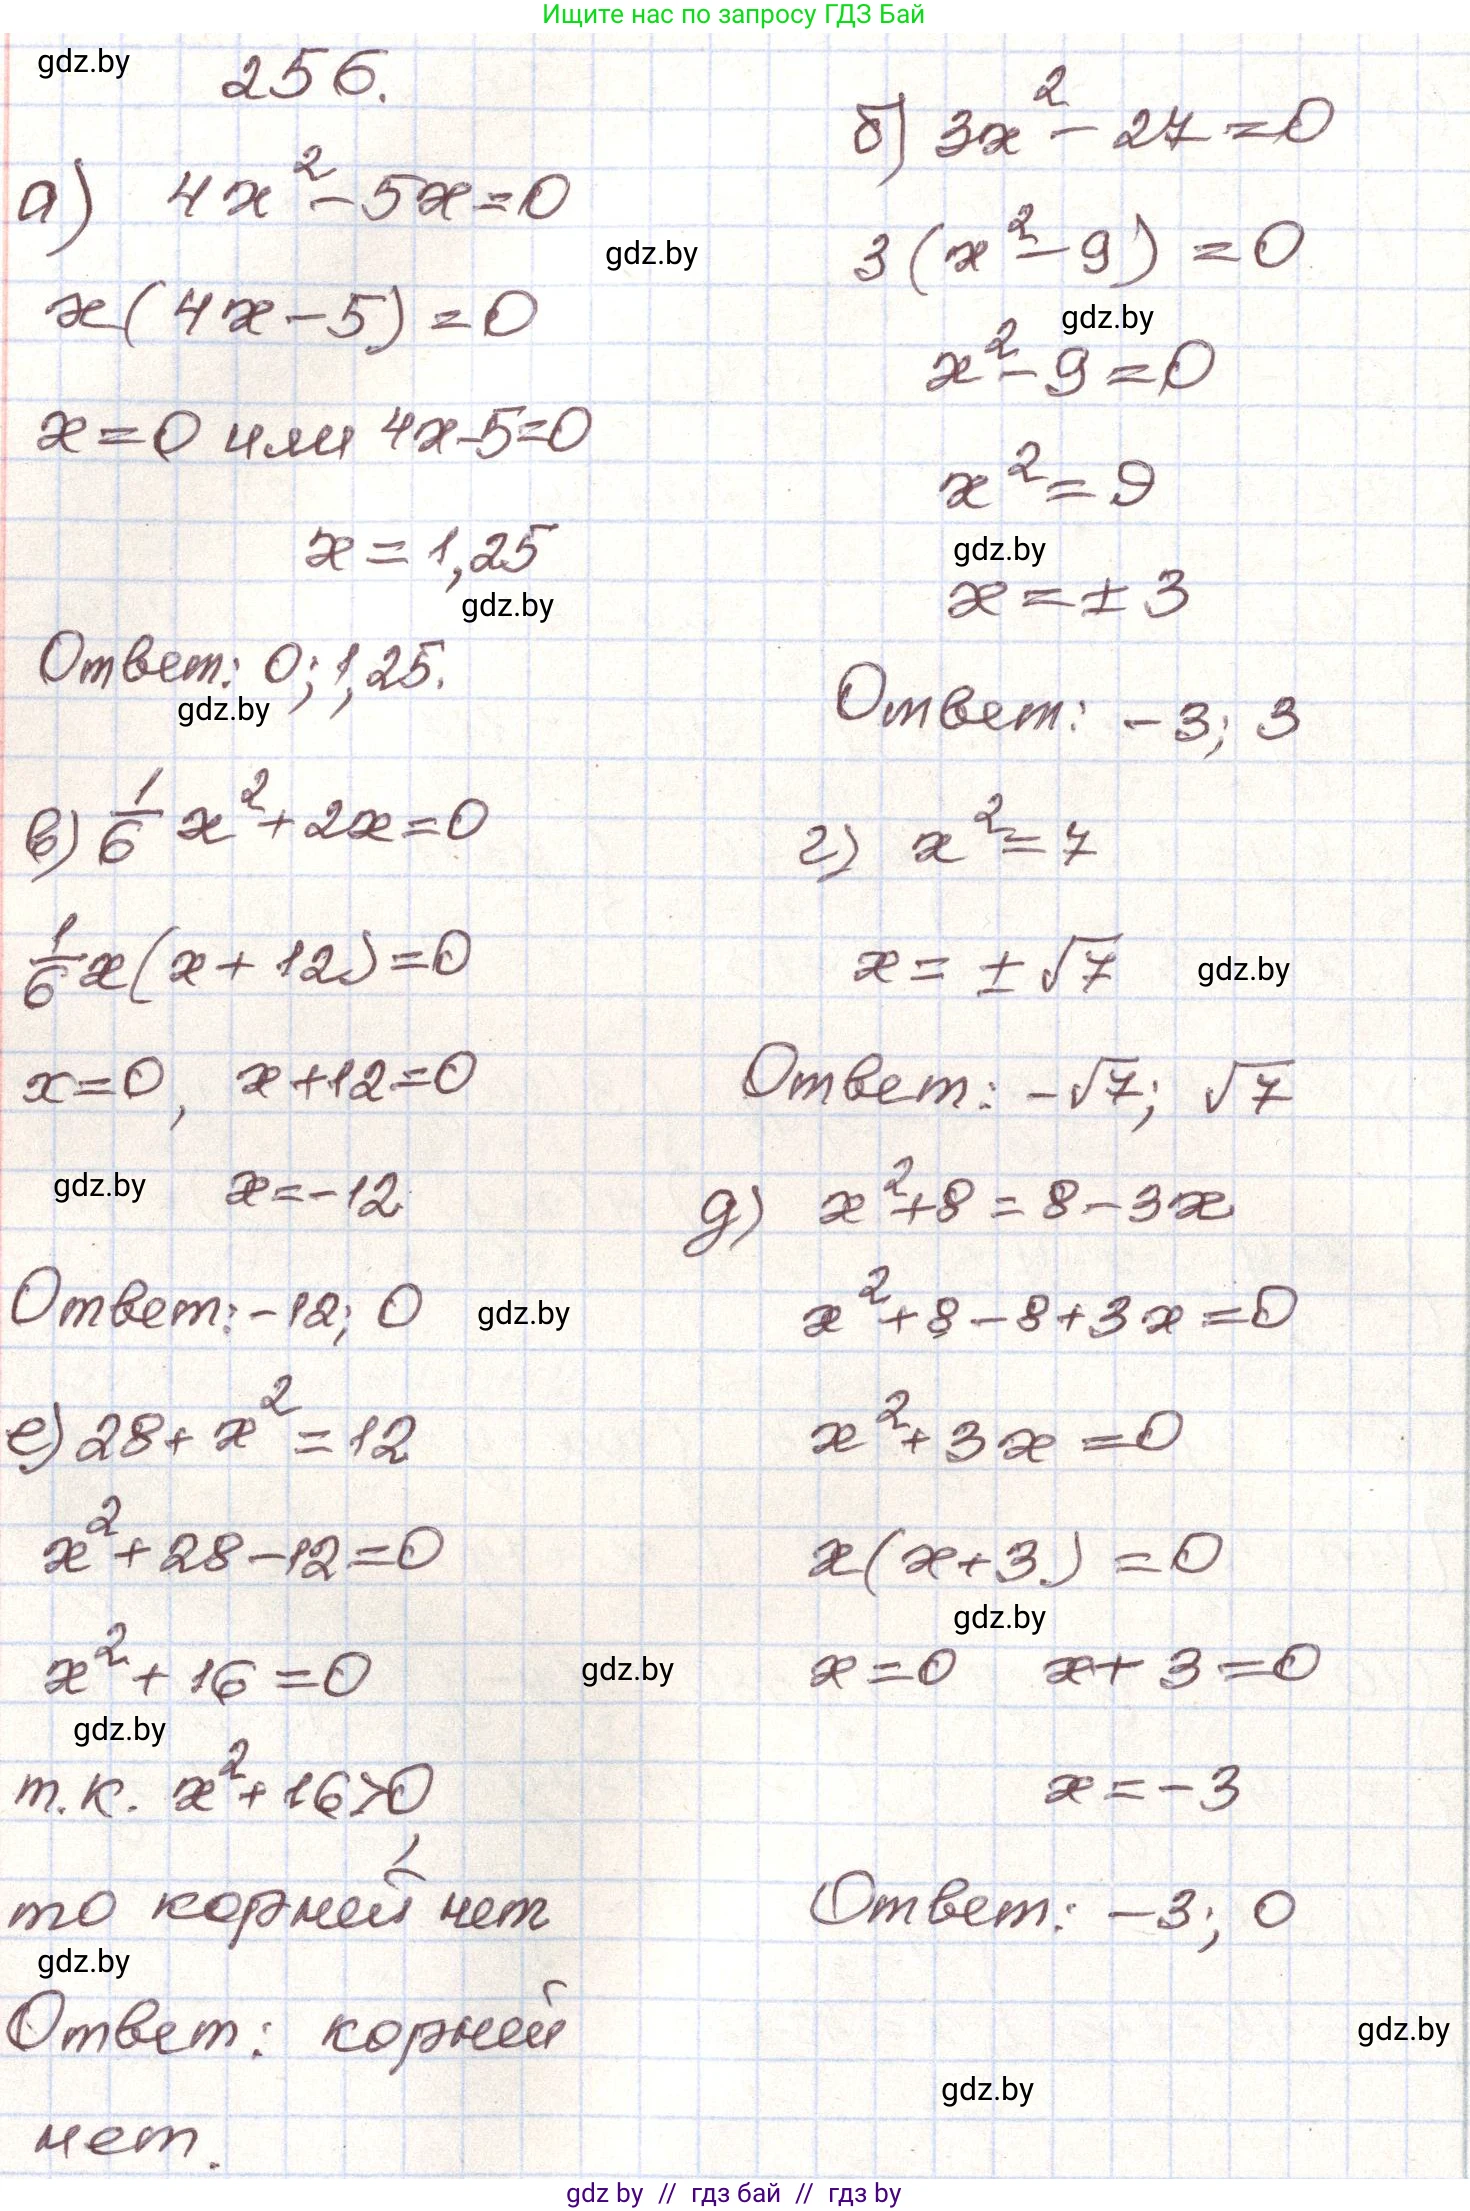 Ищите нас по запросу ГДЗ Бай
gdz.by
256.
а) 4x² - 5x = 0
gdz.by
x(4x - 5) = 0
x = 0 или 4x - 5 = 0
x = 1,25
gdz.by
Ответ: 0; 1,25.
gdz.by
б) 3x² - 27 = 0
3(x² - 9) = 0
gdz.by
x² - 9 = 0
x² = 9
gdz.by
x = ± 3
Ответ: -3; 3
в) 1/6 x² + 2x = 0
1/6 x(x + 12) = 0
x = 0, x + 12 = 0
gdz.by
x = -12
Ответ: -12; 0
gdz.by
г) x² = 7
x = ± √7
gdz.by
Ответ: -√7; √7
д) x² + 8 = 8 - 3x
x² + 8 - 8 + 3x = 0
x² + 3x = 0
x(x + 3) = 0
gdz.by
x = 0 x + 3 = 0
x = -3
Ответ: -3; 0
е) 28 + x² = 12
x² + 28 - 12 = 0
x² + 16 = 0
gdz.by
gdz.by
т.к. x² + 16 > 0,
то корней нет
gdz.by
Ответ: корней
нет.
gdz.by
gdz.by
gdz by // гдз бай // гдз by